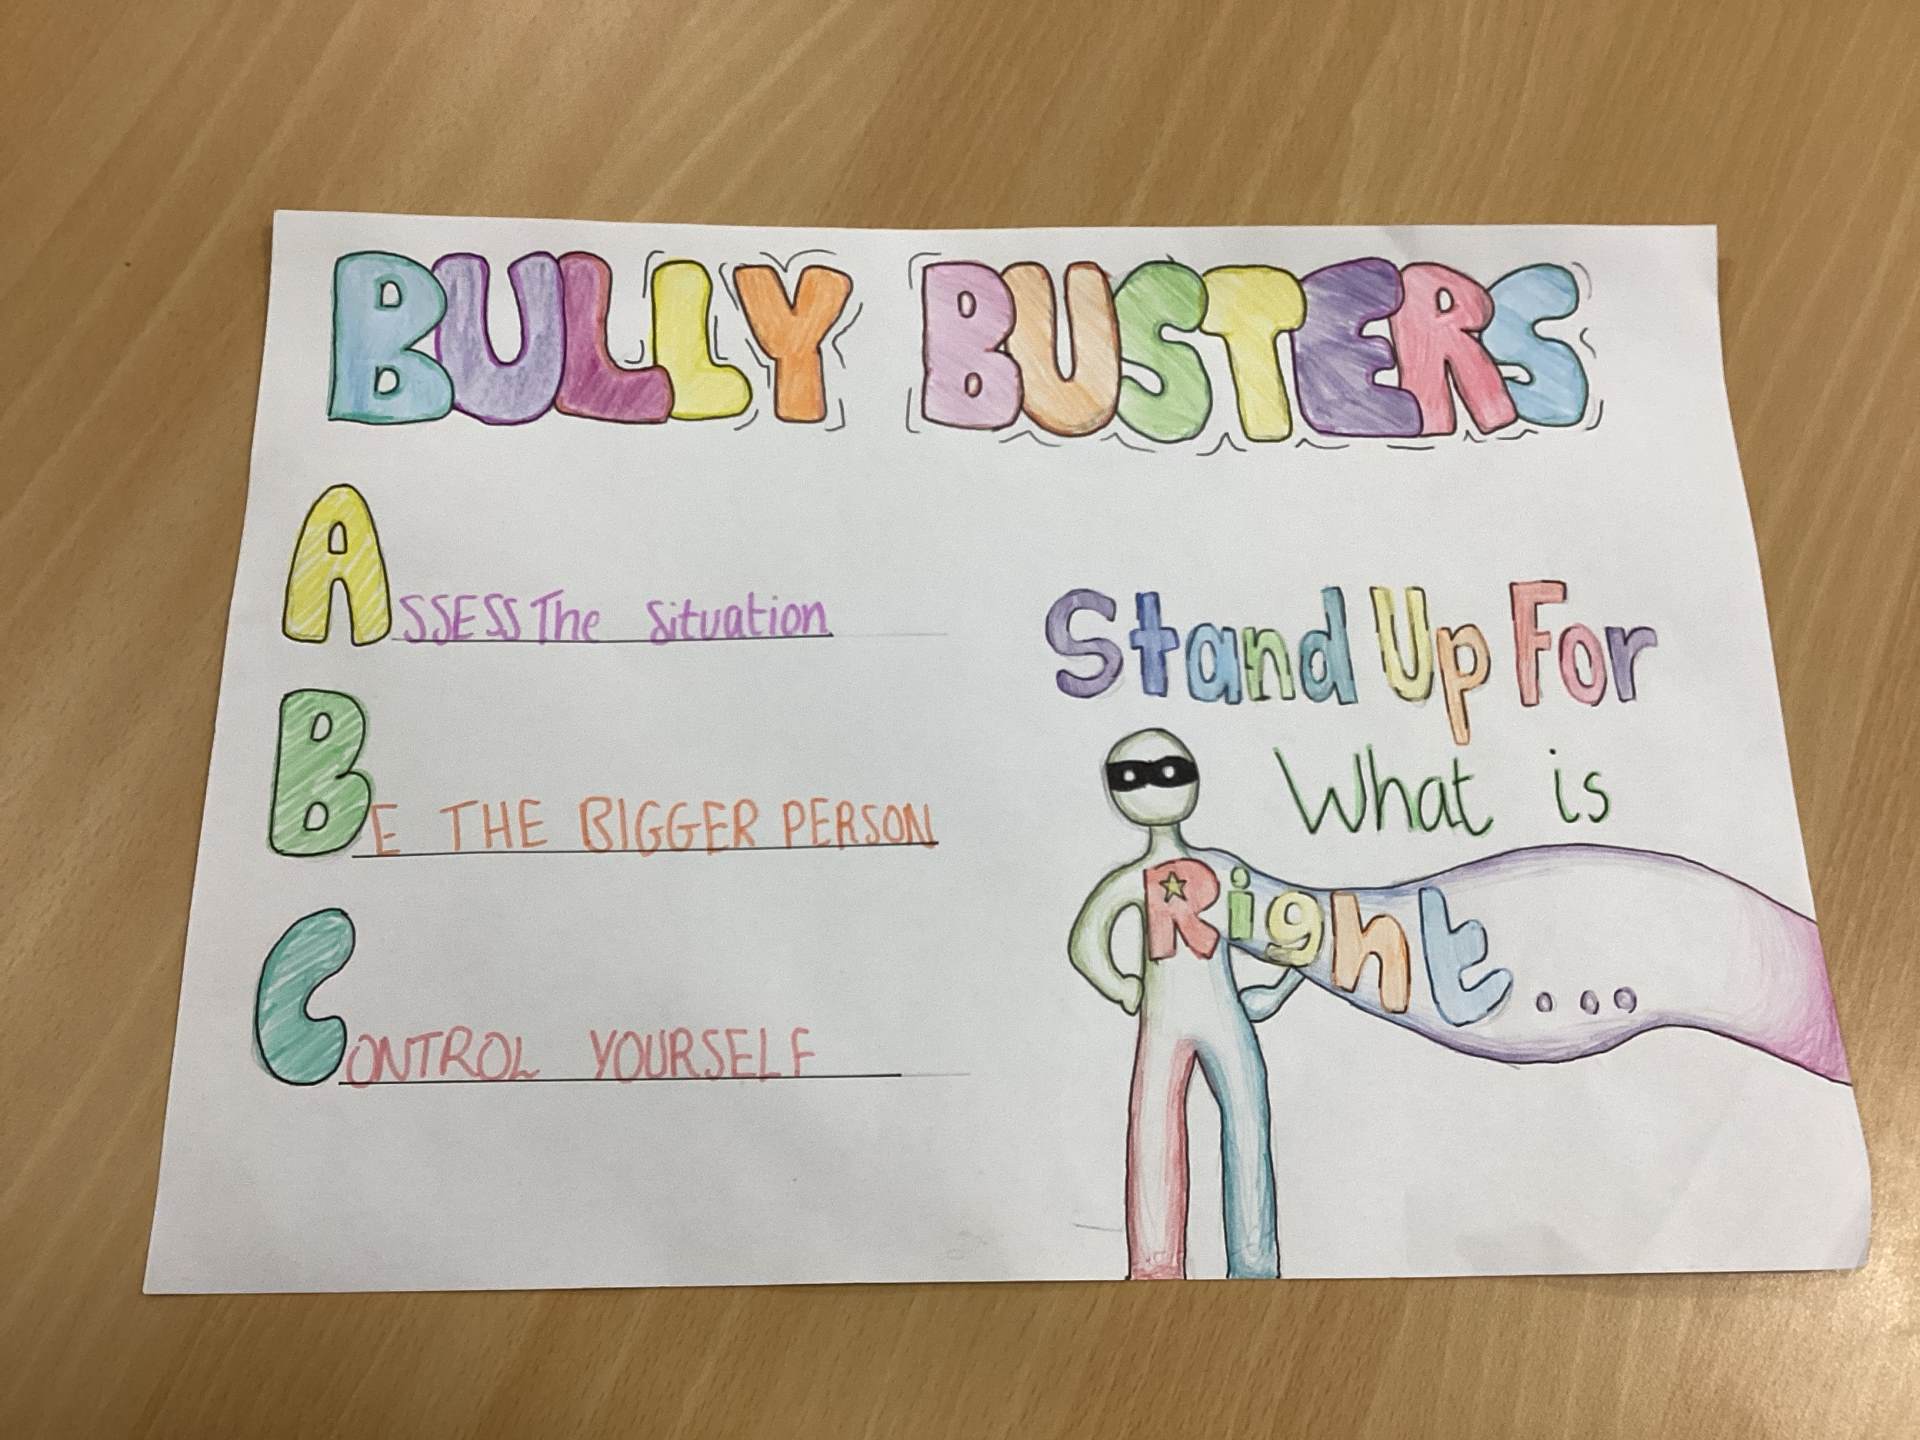 BULLY BUSTERS
ASSESS The Situation
BE THE BIGGER PERSON
CONTROL YOURSELF
Stand Up For
What is
Right...